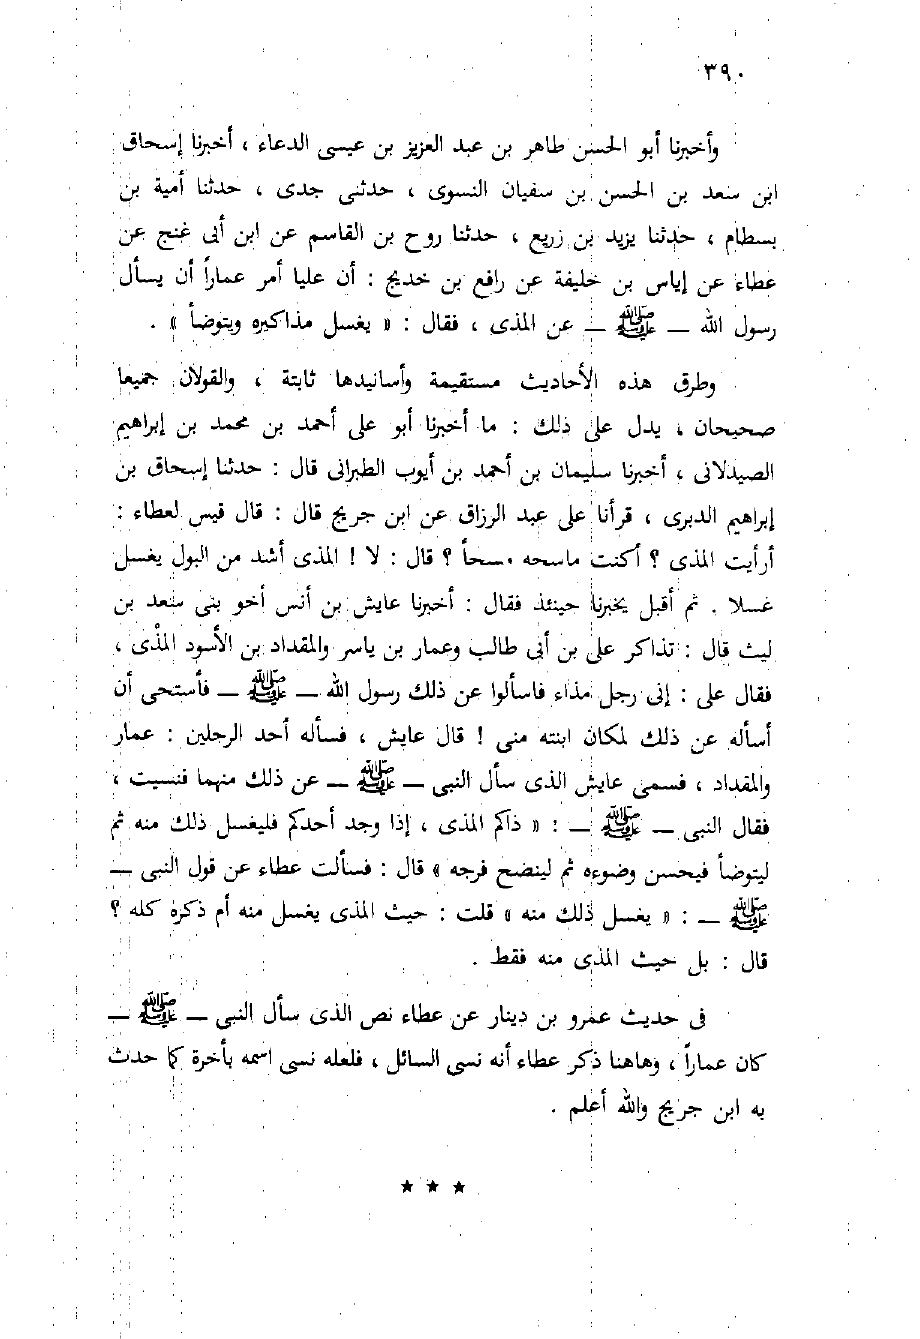 ٣٩٠
وأخبرنا أبو الحسن طاهر بن عبد العزيز بن عيسى الدعاء ، أخبرنا إسحاق
ابن سعد بن الحسن بن سفيان النسوى ، حدثنى جدى ، حدثنا أمية بن
بسطام ، حدثنا يزيد بن زريع ، حدثنا روح بن القاسم عن ابن أبى نجيح عن
عطاء عن إياس بن خليفة عن رافع بن خديج : أن عليا أمر عماراً أن يسأل
رسول الله ــ ﷺ ــ عن المذى ، فقال : « يغسل مذاكيره ويتوضأ » .
وطرق هذه الأحاديث مستقيمة وأسانيدها ثابتة ، والقولان جميعا
صحيحان ، يدل على ذلك : ما أخبرنا أبو على أحمد بن محمد بن إبراهيم
الصيدلانى ، أخبرنا سليمان بن أحمد بن أيوب الطبرانى قال : حدثنا إسحاق بن
إبراهيم الدبرى ، قرأنا على عبد الرزاق عن ابن جريج قال : قال قيس لعطاء :
أرأيت المذى ؟ أكنت ماسحه مسحاً ؟ قال : لا ! المذى أشد من البول يغسل
غسلا . ثم أقبل يخبرنا حينئذ فقال : أخبرنا عايش بن أنس أخو بنى سعد بن
ليث قال : تذاكر على بن أبى طالب وعمار بن ياسر والمقداد بن الأسود المذْى ،
فقال على : إنى رجل مذاء فاسألوا عن ذلك رسول الله ــ ﷺ ــ فأستحى أن
أسأله عن ذلك لمكان ابنته منى ! قال عايش ، فسأله أحد الرجلين : عمار
والمقداد ، فسمى عايش الذى سأل النبى ــ ﷺ ــ عن ذلك منهما فنسيت ،
فقال النبى ــ ﷺ ــ : « ذاكم المذى ، إذا وجد أحدكم فليغسل ذلك منه ثم
ليتوضأ فيحسن وضوءه ثم لينضح فرجه » قال : فسألت عطاء عن قول النبى ــ
ﷺ ــ : « يغسل ذلك منه » قلت : حيث المذى يغسل منه أم ذكره كله ؟
قال : بل حيث المذى منه فقط .
فى حديث عمرو بن دينار عن عطاء نص الذى سأل النبى ــ ﷺ ــ
كان عماراً ، وهاهنا ذكر عطاء أنه نسى السائل ، فلعله نسى اسمه بأخرة كما حدث
به ابن جريج والله أعلم .
★ ★ ★